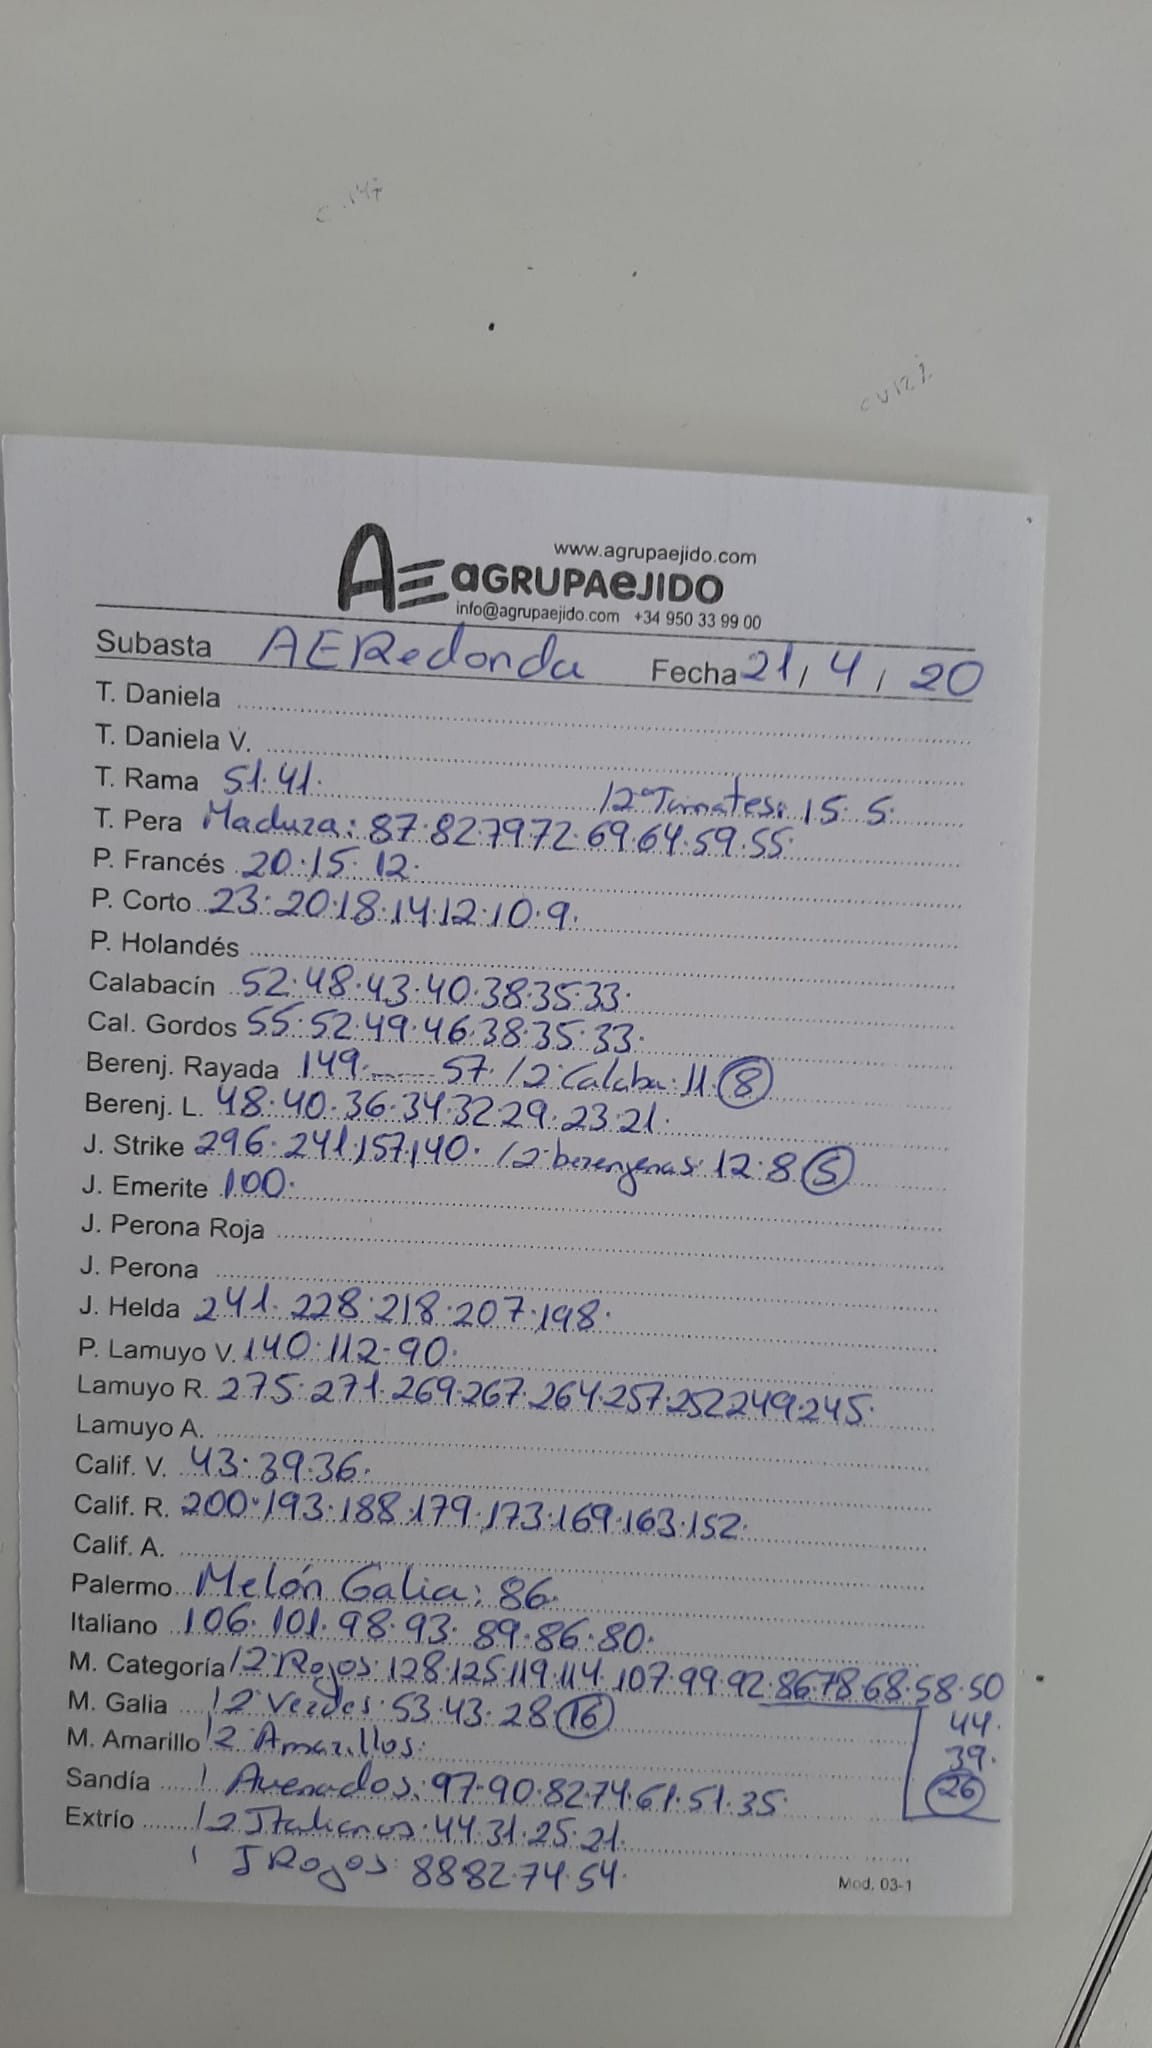 www.agrupaejido.com
AE aGRUPAeJIDO
info@agrupaejido.com +34 950 33 99 00
Subasta AERedonda Fecha 21, 4, 20
T. Daniela
T. Daniela V.
T. Rama 51.41. /2ªTomates: 15.5.
T. Pera Maduza: 87.82.79.72.69.64.59.55.
P. Francés 20.15.12.
P. Corto 23.20.18.14.12.10.9.
P. Holandés
Calabacín 52.48.43.40.38.35.33.
Cal. Gordos 55.52.49.46.38.35.33.
Berenj. Rayada 149.----57. /2ªCalaba: 11.8
Berenj. L. 48.40.36.34.32.29.23.21.
J. Strike 296.241.157.140. /2ªberenjenas: 12.8.5
J. Emerite 100.
J. Perona Roja
J. Perona
J. Helda 241.228.218.207.198.
P. Lamuyo V. 140.112-90.
Lamuyo R. 275.271.269.267.264.257.252.249.245.
Lamuyo A.
Calif. V. 43.39.36.
Calif. R. 200.193.188.179.173.169.163.152.
Calif. A.
Palermo Melón Galia: 86.
Italiano 106.101.98.93.89.86.80.
M. Categoría /2ªRojos: 128.125.119.114.107.99.92.86.78.68.58.50
M. Galia /2ªVerdes: 53.43.28.16
44.
M. Amarillo /2ªAmarillos:
39.
Sandía / Avenados: 97-90.82.74.61.51.35.
26
Extrío /2ªItalianos: 44.31.25.21.
/ JRojos: 88.82.74.54.
Mod. 03-1